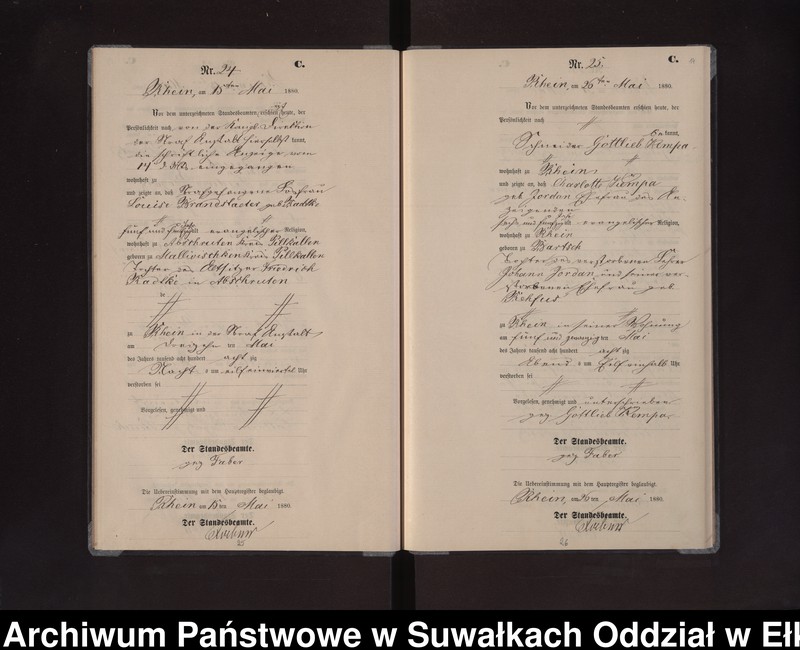 C.
Nr. 24
Rhein, am 15ten Mai 1880.
Vor dem unterzeichneten Standesbeamten erschien heute, der
Persönlichkeit nach von der Königl. Direktion
der Straf Anstalt hierselbst kannt,
die schriftliche Anzeige vom
14 d. Mts. eingegangen
wohnhaft zu
und zeigte an, daß Strafgefangene Losfrau
Louise Brandstäder geb. Radtke
fünf und evangelischer Religion,
wohnhaft zu Abschruten Kreis Pillkallen
geboren zu Mallwischken Kreis Pillkallen
Tochter des Friedrich
Radtke in Abschruten
zu Rhein in der Straf Anstalt
am dreizehn ten Mai
des Jahres tausend acht hundert acht zig
Nachts um Uhr
verstorben sei
Vorgelesen, genehmigt und
Der Standesbeamte.
gez Faber
Die Uebereinstimmung mit dem Hauptregister beglaubigt.
Rhein, am 15 ten Mai 1880.
Der Standesbeamte.
25
C.
Nr. 25
Rhein, am 26ten Mai 1880.
Vor dem unterzeichneten Standesbeamten erschien heute, der
Persönlichkeit nach
be kannt,
Schneider Gottlieb Kempa
wohnhaft zu Rhein
und zeigte an, daß Charlotte Kempa
geb Jordan Ehefrau des An-
zeigenden
sechs und evangelischer Religion,
wohnhaft zu Rhein
geboren zu Bartsch
Tochter des verstorbenen
Johann Jordan und seiner ver-
storbenen Ehefrau geb
zu Rhein in seiner Wohnung
am fünf und zwanzigsten Mai
des Jahres tausend acht hundert acht zig
Abend s um Uhr
verstorben sei
Vorgelesen, genehmigt und unterschrieben
gez Gottlieb Kempa
Der Standesbeamte.
gez Faber
Die Uebereinstimmung mit dem Hauptregister beglaubigt.
Rhein, am 26 ten Mai 1880.
Der Standesbeamte.
26
Archiwum Państwowe w Suwałkach Oddział w Ełk